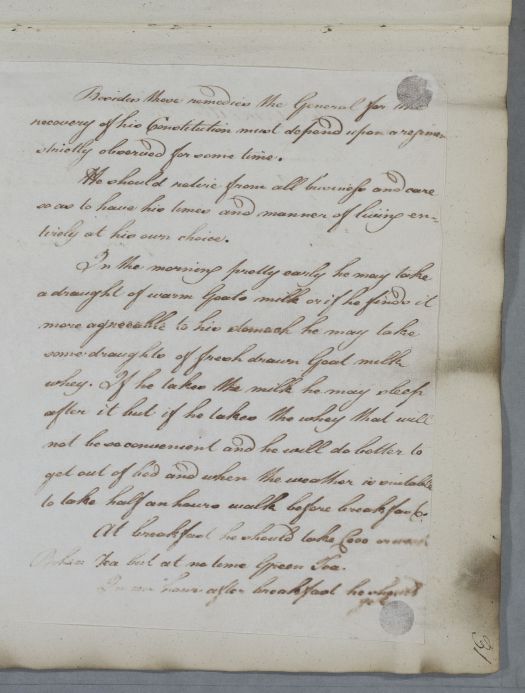 Besides these remedies the General for the
recovery of his Constitution must depend upon a regimen
strictly observed for some time.
He should retire from all business and care
so as to have his times and manner of living en=
tirely at his own choice.
In the morning pretty early he may take
a draught of warm Goats milk or if he finds it
more agreeable to his stomach he may take
some draughts of fresh drawn Goat milk
whey. If he takes the milk he may sleep
after it but if he takes the whey that will
not be so convenient and he will do better to
get out of bed and when the weather is suitable
to take half an hours walk before breakfast.
At breakfast he should take or weak
Bohea Tea but at no time Green Tea.
In an hour after breakfast he should
get
31